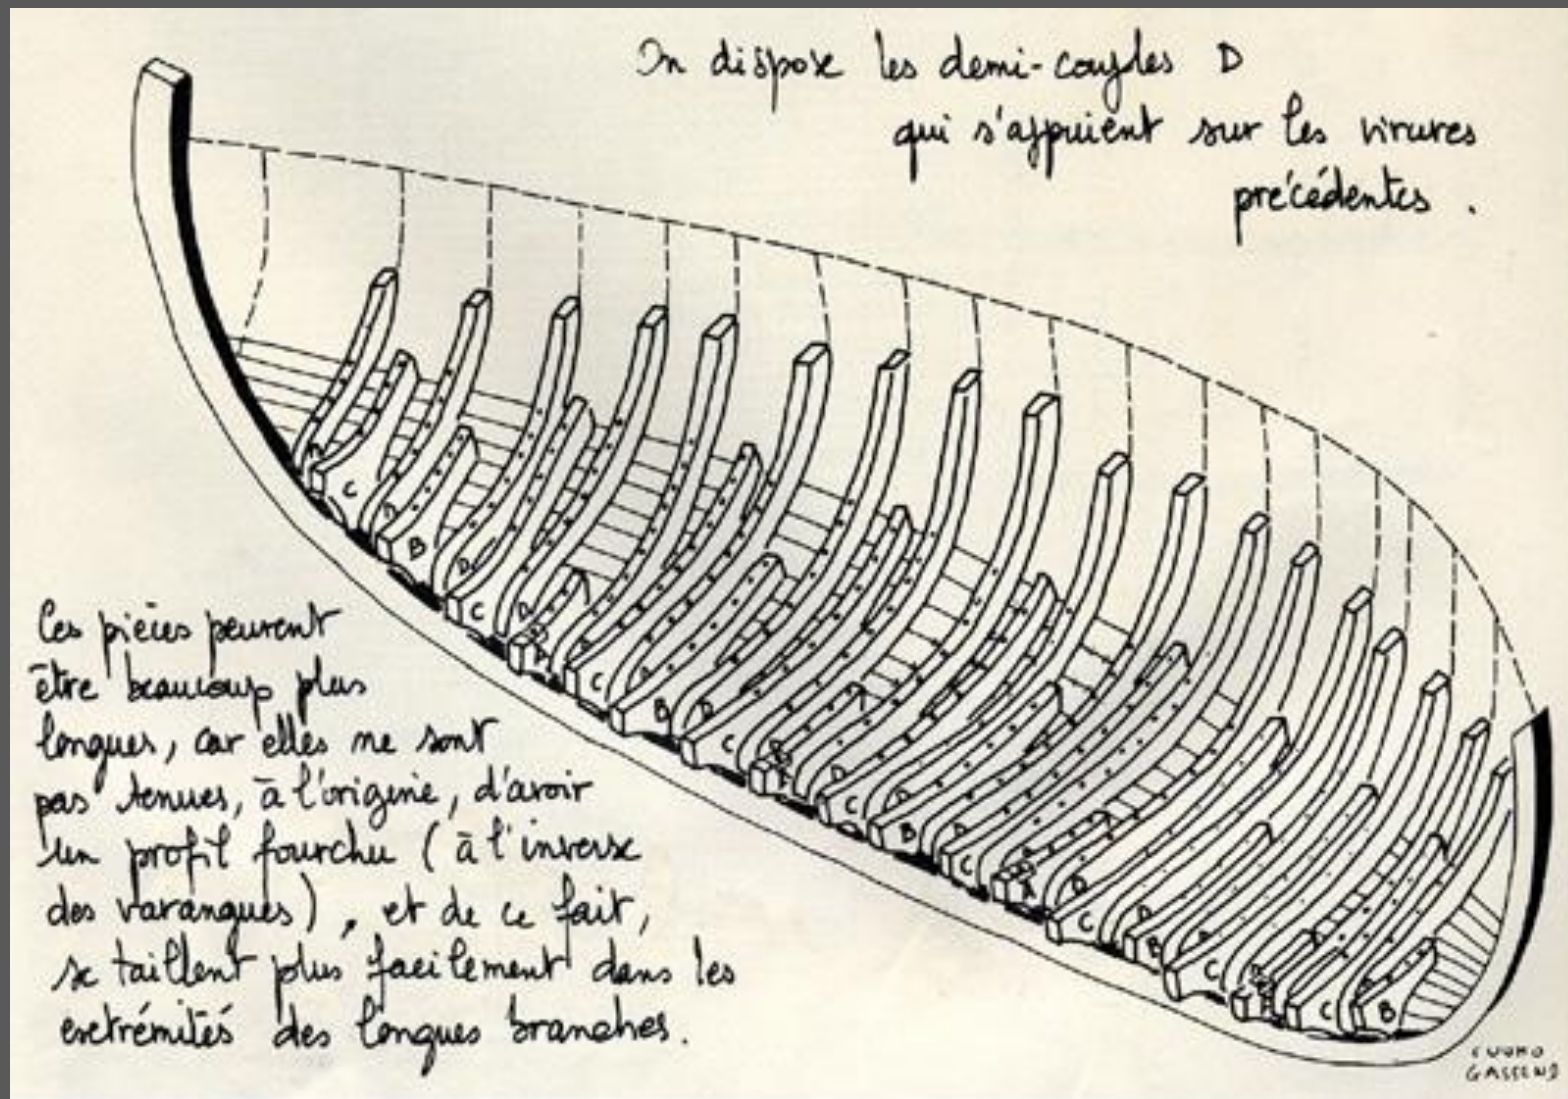 On dispose les demi-couples D
qui s'appuient sur les virures
précédentes .
Ces pièces peuvent
être beaucoup plus
longues, car elles ne sont
pas tenues, à l'origine, d'avoir
un profil fourchu ( à l'inverse
des varangues ) , et de ce fait,
se taillent plus facilement dans les
extrémités des longues branches.
C
D
B
D
C
D
B
A
C
B
D
C
A
D
C
D
B
D
C
A
D
C
D
B
D
C
C
B
CUOMO
GASSEND